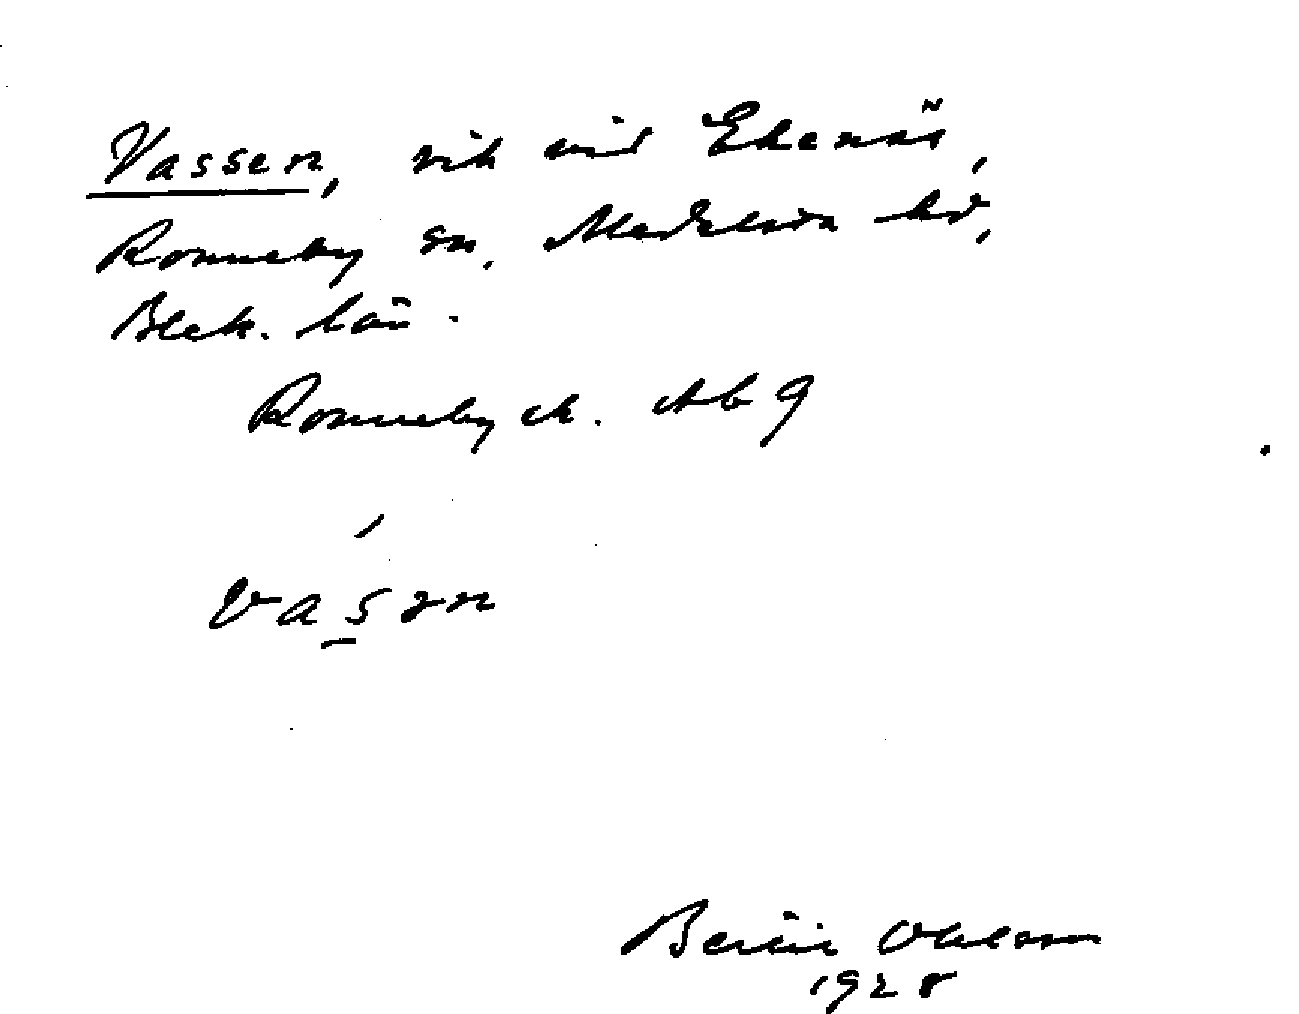 Vassen, vik vid Ekenäs,
Ronneby sn, Medelsta hd,
Blek. län.
Ronneby ek. Ab 9
vasen
Bertil Ohlsson
1928